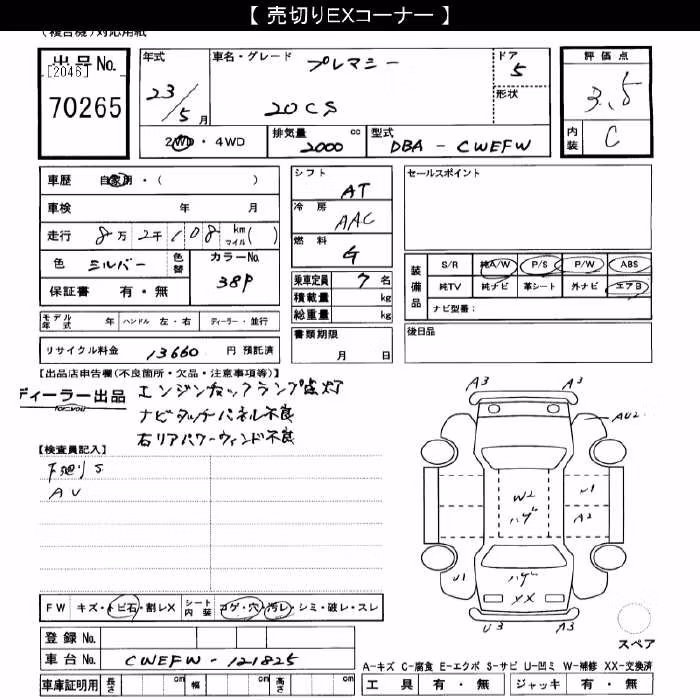 【 売切りEXコーナー 】
(複合機)対応用紙
出品No.
[2046]
70265
年式
23/5月
車名・グレード
プレマシー
20CS
ドア
5
形状
評価点
3.5
内装
C
2WD・4WD
排気量
2000 cc
型式
DBA - CWEFW
車歴 自家用・( )
車検 年 月
走行 8万 2千 108 km マイル( )
色 シルバー 色替
カラーNo.
38P
保証書 有・無
シフト
AT
冷房
AAC
燃料
G
乗車定員 7 名
積載量 kg
総重量 kg
書類期限
月 日
セールスポイント
装備品
S/R 純A/W P/S P/W ABS
純TV 純ナビ 革シート 外ナビ エアB
ナビ型番:
後日品
モデル年式 年 ハンドル 左・右 ディーラー・並行
リサイクル料金 13660 円 預託済
【出品店申告欄(不良箇所・欠品・注意事項等)】
ディーラー出品
for you
エンジンチェックランプ点灯
ナビタッチパネル不良
右リアパワーウィンド不良
【検査員記入】
下廻りS
AU
A3 A3
AU2
W2
ハゲ
U1
A2
ハゲ
XX
U1
U3 A3
スペア
FW キズ・トビ石・割レX シート内装 コゲ・穴・汚レ・シミ・破レ・スレ
登録No.
車台No. CWEFW - 121825
車庫証明用 長さ cm 幅 cm 高さ cm
A-キズ C-腐食 E-エクボ S-サビ U-凹ミ W-補修 XX-交換済
工具 有・無 ジャッキ 有・無